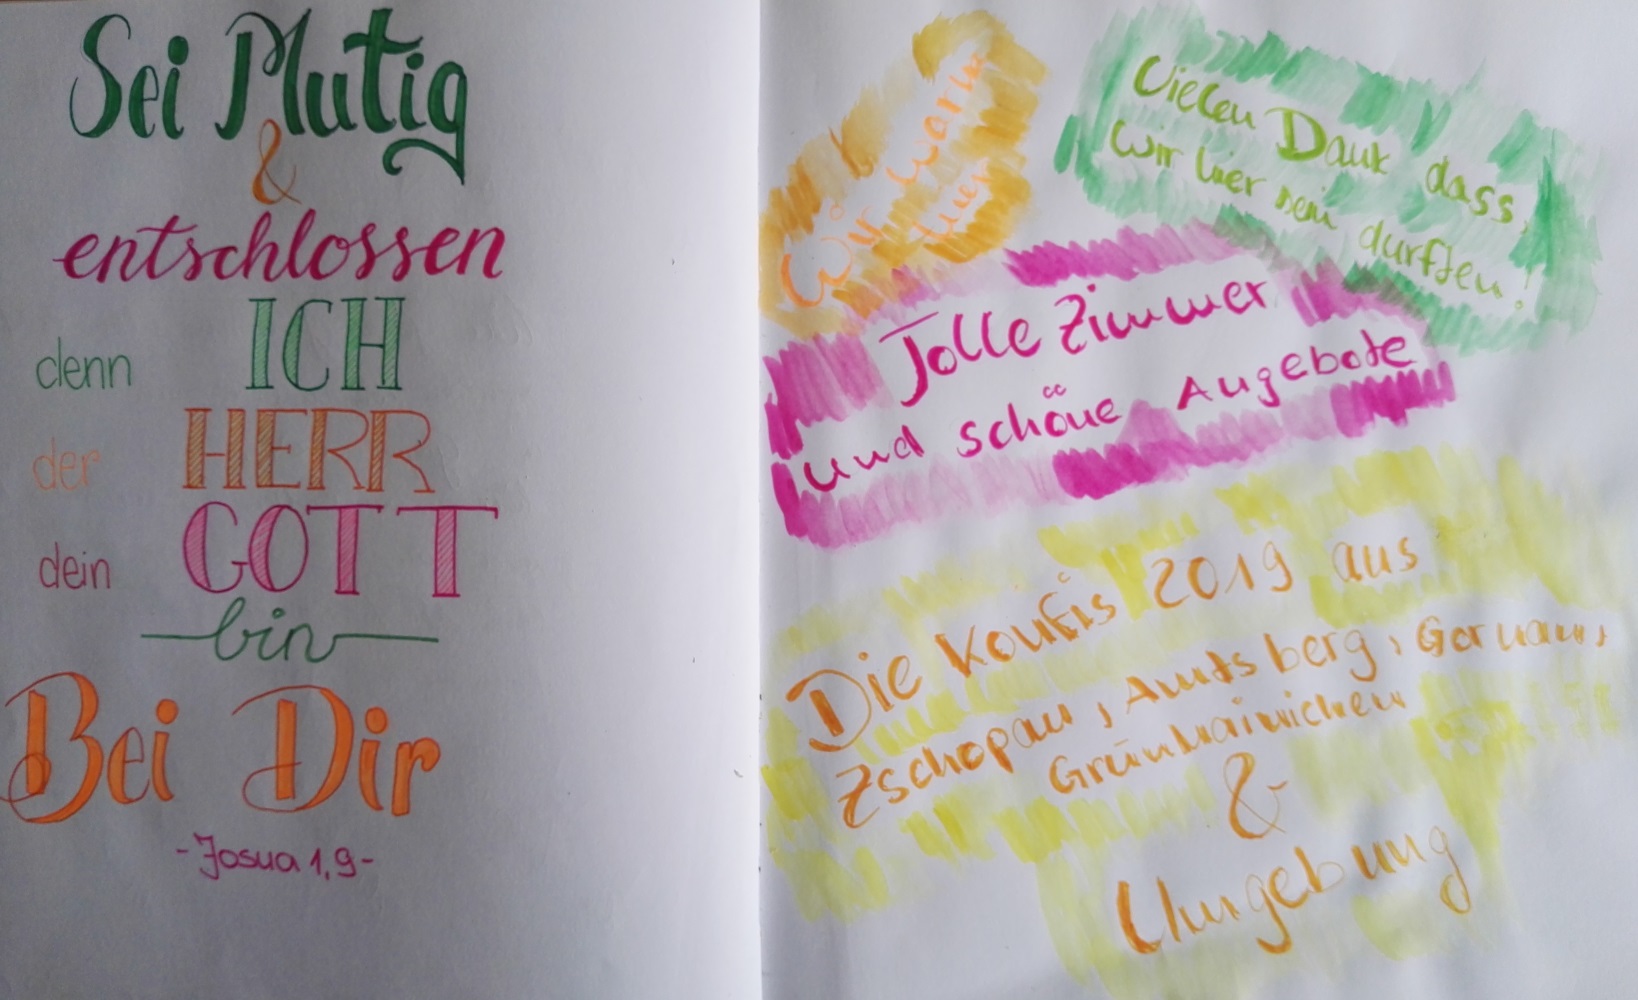 Sei Mutig
&
entschlossen
denn ICH
der HERR
dein GOTT
bin
Bei Dir
-Josua 1,9-
Wir warn
hier
Vielen Dank dass,
wir hier sein durften!
Tolle Zimmer
und schöne Angebote
Die Konfis 2019 aus
Zschopau, Amtsberg, Gornau,
Grünhainichen
&
Umgebung